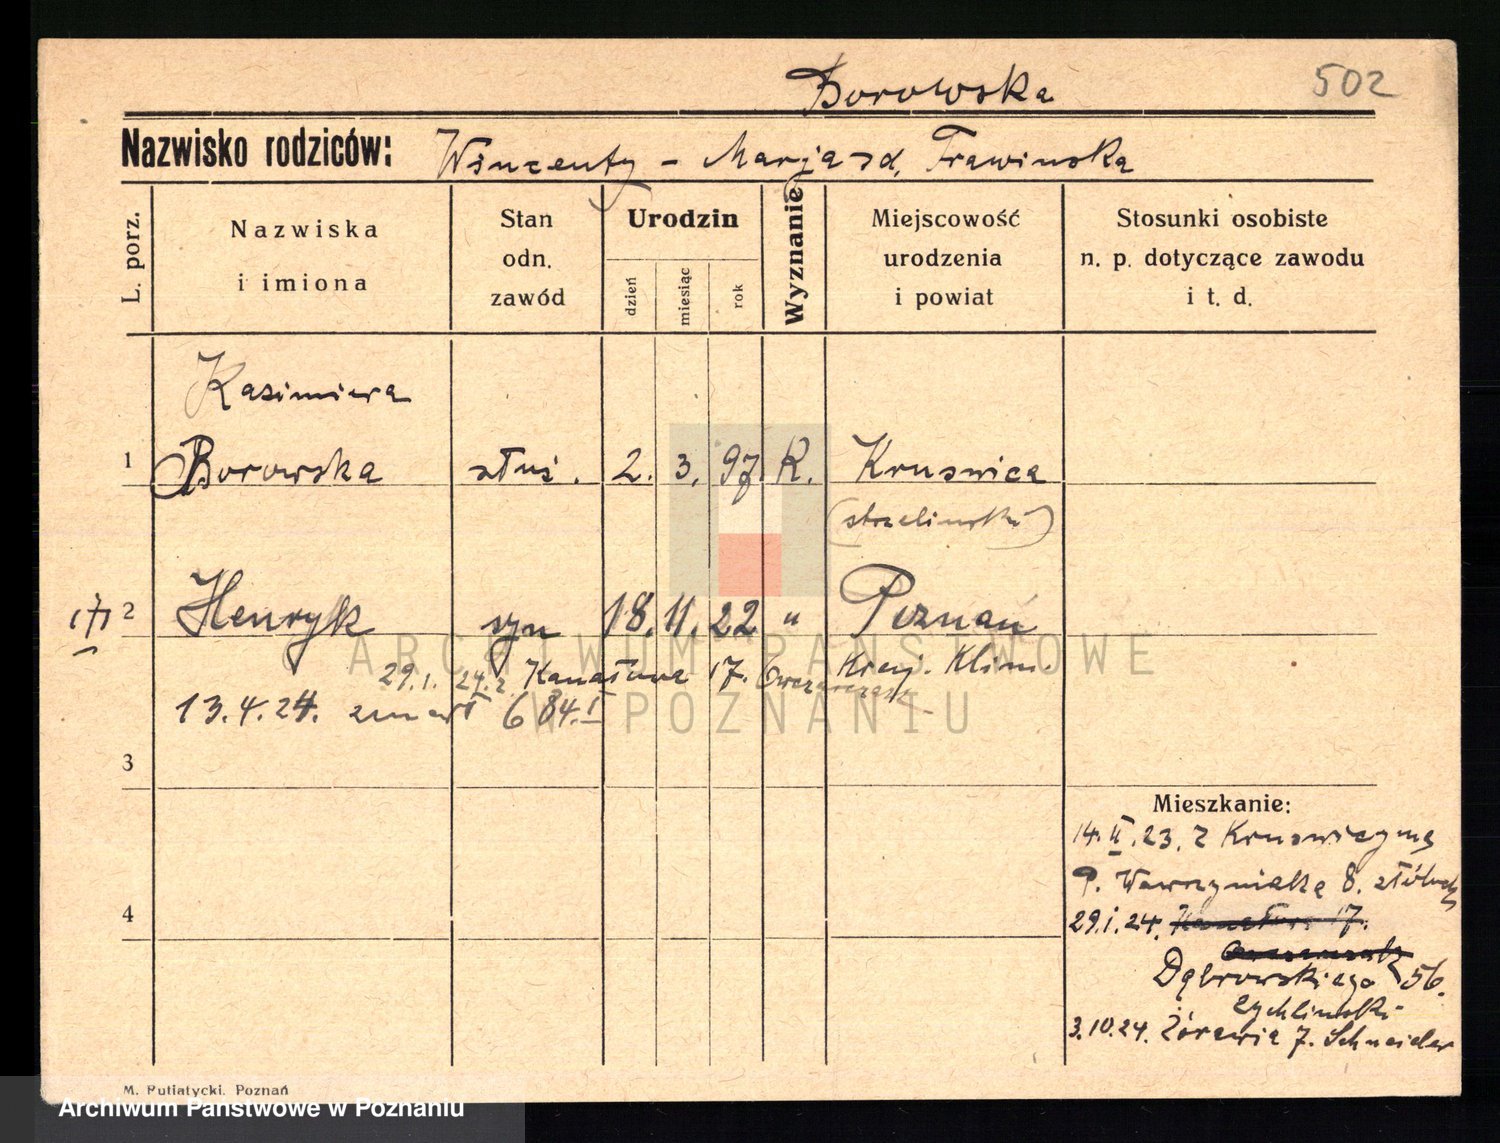 Borowska
502
Nazwisko rodziców: Wincenty - Marja zd. Trawinska
L. porz.
Nazwiska i imiona
Stan odn. zawód
Urodzin
dzień
miesiąc
rok
Wyznanie
Miejscowość urodzenia i powiat
Stosunki osobiste n. p. dotyczące zawodu i t. d.
Kazimiera
1 Borowska służ. 2. 3. 97 R. Kruswica
(strzelinski)
2 Henryk syn 18. 11. 22 " Poznań
29.1. 24. Kanałowa 17. Owczarczak
13.4.24. zmarł 684.I
3
4
Mieszkanie:
14.II.23. z Kruswicy na
P. Wawrzyniaka 8.
29.1.24. Kanałowa 17.
Owczarczak
Dąbrowskiego 56.
Zychlinski
3.10.24. Żórawia 7. Schneider
M. Putiatycki, Poznań
ARCHIWUM PAŃSTWOWE
W POZNANIU
Archiwum Państwowe w Poznaniu